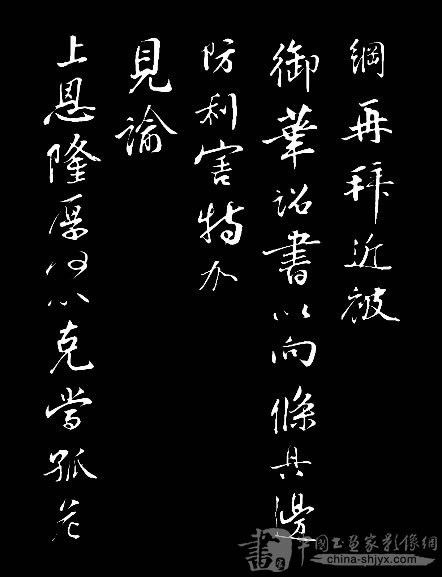 綱再拜近被
御筆詔書以向條具邊
防利害特加
見諭
上恩隆厚何以克當孤危
中國書畫家影像網
china-shjyx.com